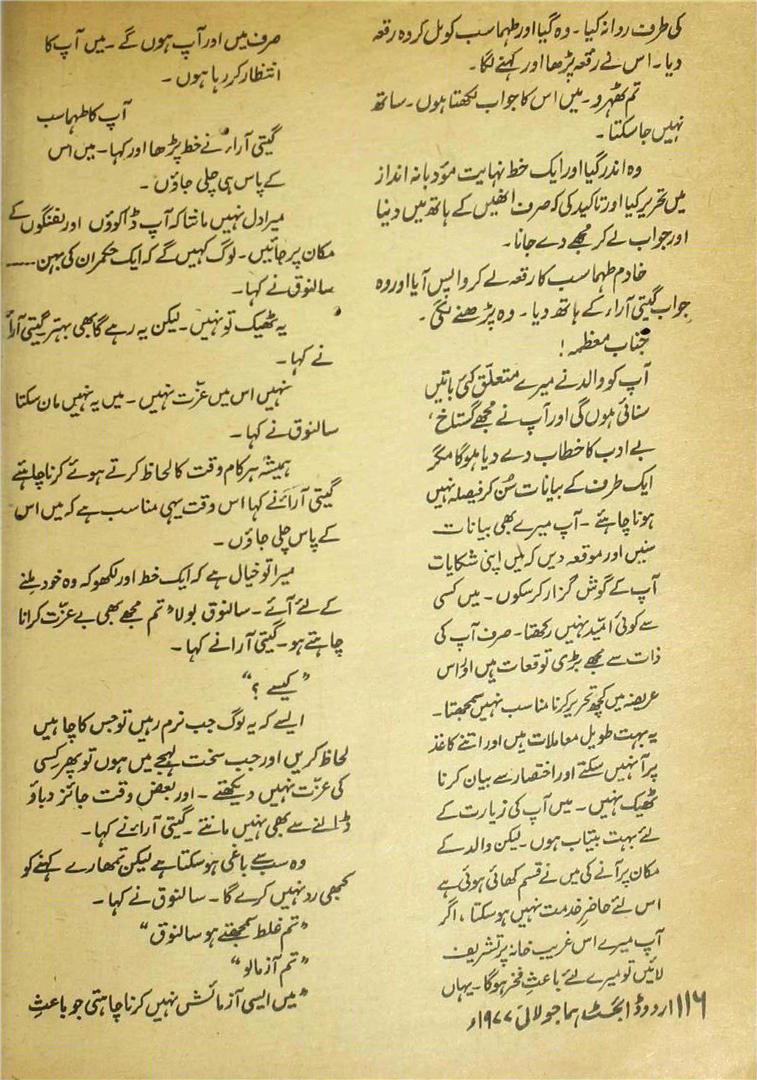 کی طرف روانہ کیا۔ وہ گیا اور طہماسب کو مل کر وہ رقعہ
دیا۔ اس نے رقعہ پڑھا اور کہنے لگا۔
تم ٹھہرو۔ میں اس کا جواب لکھتا ہوں۔ ساتھ
نہیں جا سکتا۔
وہ اندر گیا اور ایک خط نہایت مؤدبانہ انداز
میں تحریر کیا اور تاکید کی کہ صرف انھیں کے ہاتھ میں دینا
اور جواب لے کر مجھے دے جانا۔
خادم طہماسب کا رقعہ لے کر واپس آیا اور وہ
جواب گیتی آراء کے ہاتھ دیا۔ وہ پڑھنے لگی۔
جناب معظمہ!
آپ کو والد نے میرے متعلق کئی باتیں
سنائی ہوں گی اور آپ نے مجھے گستاخ،
بے ادب کا خطاب دے دیا ہوگا مگر
ایک طرف کے بیانات سُن کر فیصلہ نہیں
ہونا چاہئے۔ آپ میرے بھی بیانات
سنیں اور موقعہ دیں کہ میں اپنی شکایات
آپ کے گوش گزار کر سکوں۔ میں کسی
سے کوئی امّید نہیں رکھتا۔ صرف آپ کی
ذات سے مجھے بڑی توقعات ہیں اور اس
عریضہ میں کچھ تحریر کرنا مناسب نہیں سمجھتا۔
یہ بہت طویل معاملات ہیں اور اتنے کاغذ
پر آ نہیں سکتے اور اختصار سے بیان کرنا
ٹھیک نہیں۔ میں آپ کی زیارت کے
لئے بہت بیتاب ہوں۔ لیکن والد کے
مکان پر آنے کی میں نے قسم کھائی ہوئی ہے
اس لئے حاضرِ خدمت نہیں ہو سکتا، اگر
آپ میرے اس غریب خانہ پر تشریف
لائیں تو میرے لئے باعثِ فخر ہوگا۔ یہاں
۱۱۶ اردو ڈائجسٹ ہما جولائی ۱۹۷۷ء
صرف میں اور آپ ہوں گے۔ میں آپ کا
انتظار کر رہا ہوں۔
آپ کا طہماسب
گیتی آراء نے خط پڑھا اور کہا۔ میں اس
کے پاس ہی چلی جاؤں۔
میرا دل نہیں مانتا کہ آپ ڈاکوؤں اور لفنگوں کے
مکان پر جائیں۔ لوگ کہیں گے کہ ایک حکمران کی بہن.....
سالنوق نے کہا۔
یہ ٹھیک تو نہیں۔ لیکن یہ رہے گا بھی بہتر گیتی آرأ
نے کہا۔
نہیں اس میں عزّت نہیں۔ میں یہ نہیں مان سکتا
سالنوق نے کہا۔
ہمیشہ ہر کام وقت کا لحاظ کرتے ہوئے کرنا چاہئے
گیتی آراءنے کہا اس وقت یہی مناسب ہے کہ میں اس
کے پاس چلی جاؤں۔
میرا تو خیال ہے کہ ایک خط اور لکھو کہ وہ خود ملنے
کے لئے آئے۔ سالنوق بولا ”تم مجھے بھی بے عزّت کرانا
چاہتے ہو۔ گیتی آرا نے کہا۔
”کیسے؟“
ایسے کہ یہ لوگ جب نرم رہیں تو جس کا چاہیں
لحاظ کریں اور جب سخت لہجے میں ہوں تو پھر کسی
کی عزّت نہیں دیکھتے۔ اور بعض وقت جائز دباؤ
ڈالنے سے بھی نہیں مانتے۔ گیتی آراءنے کہا۔
وہ سب سے باغی ہو سکتا ہے لیکن تمھارے کہنے کو
کبھی رد نہیں کرے گا۔ سالنوق نے کہا۔
”تم غلط سمجھتے ہو سالنوق“
”تم آزما لو“
”میں ایسی آزمائش نہیں کرنا چاہتی جو باعثِ